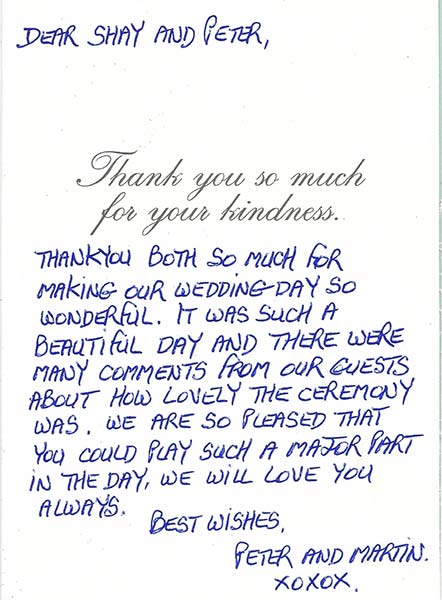 DEAR SHAY AND PETER,
Thank you so much
for your kindness.
THANKYOU BOTH SO MUCH FOR
MAKING OUR WEDDING DAY SO
WONDERFUL. IT WAS SUCH A
BEAUTIFUL DAY AND THERE WERE
MANY COMMENTS FROM OUR GUESTS
ABOUT HOW LOVELY THE CEREMONY
WAS. WE ARE SO PLEASED THAT
YOU COULD PLAY SUCH A MAJOR PART
IN THE DAY, WE WILL LOVE YOU
ALWAYS.
BEST WISHES,
PETER AND MARTIN.
XOXOX.